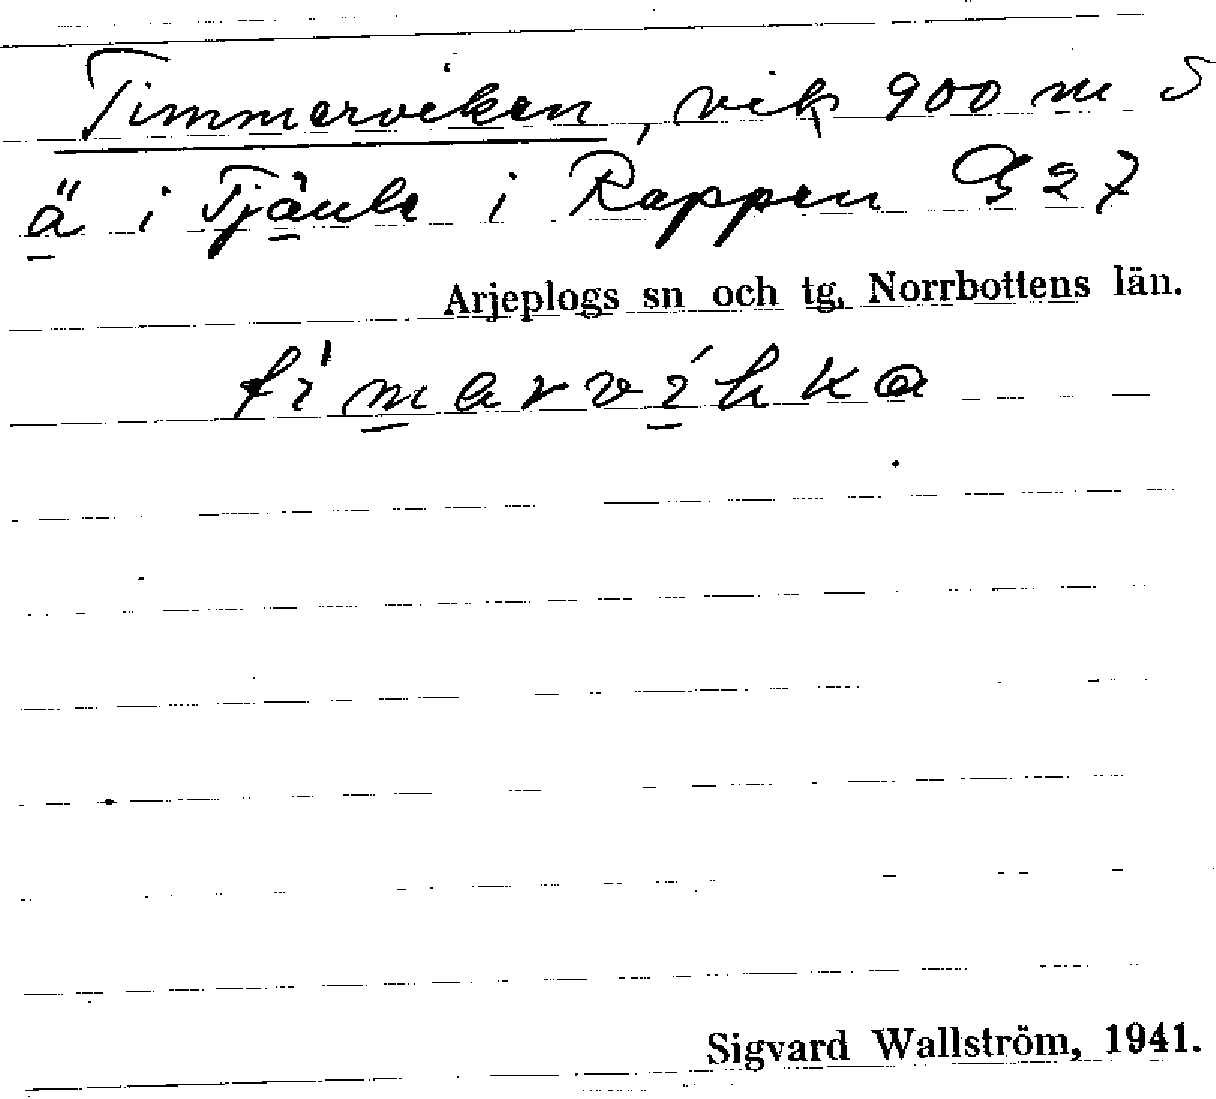 Timmerviken, vik 900 m S
ä i Tjåule i Rappen G 27
Arjeplogs sn och tg, Norrbottens län.
ti'marvíhka
Sigvard Wallström, 1941.